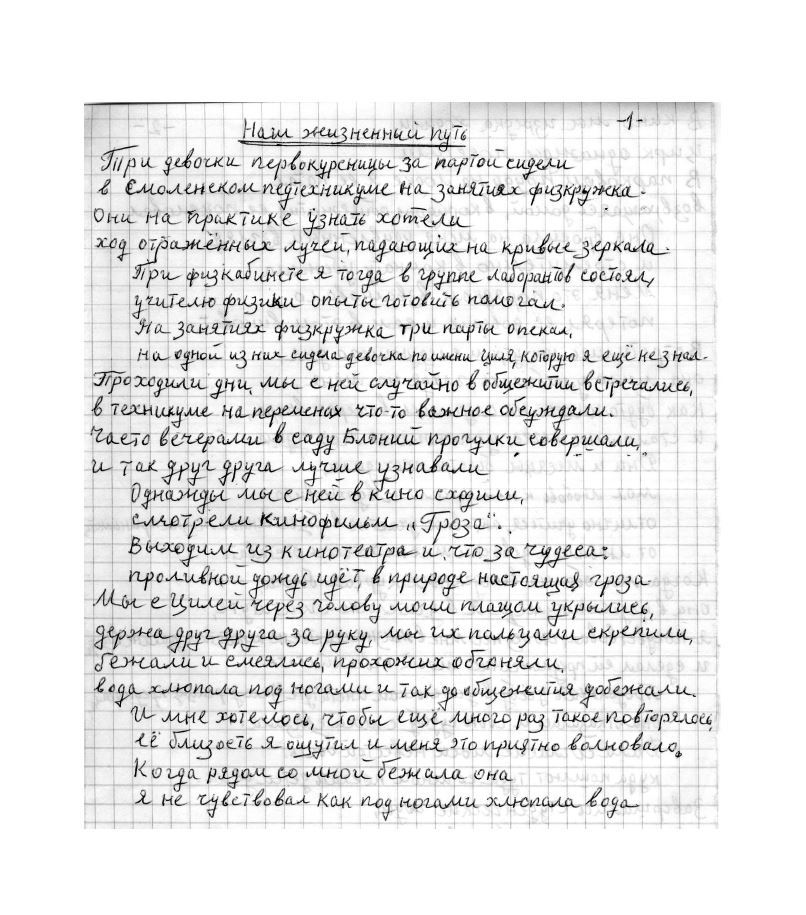 -1-
Наш жизненный путь
Три девочки первокурсницы за партой сидели
в Смоленском педтехникуме на занятиях физкружка.
Они на практике узнать хотели
ход отражённых лучей, падающих на кривые зеркала.
При физкабинете я тогда в группе лаборантов состоял,
учителю физики опыты готовить помогал.
На занятиях физкружка три парты опекал,
на одной из них сидела девочка по имени Циля, которую я ещё не знал.
Проходили дни, мы с ней случайно в общежитии встречались,
в техникуме на переменах что-то важное обсуждали.
Часто вечерами в саду Блоний прогулки совершали,
и так друг друга лучше узнавали
Однажды мы с ней в кино сходили,
смотрели кинофильм „Гроза“.
Выходим из кинотеатра и, что за чудеса:
проливной дождь идёт, в природе настоящая гроза
Мы с Цилей через голову моим плащом укрылись,
держа друг друга за руку, мы их пальцами скрепили,
бежали и смеялись, прохожих обгоняли,
вода хлюпала под ногами и так до общежития добежали.
И мне хотелось, чтобы ещё много раз такое повторялось,
её близость я ощутил и меня это приятно волновало.
Когда рядом со мной бежала она
я не чувствовал как под ногами хлюпала вода